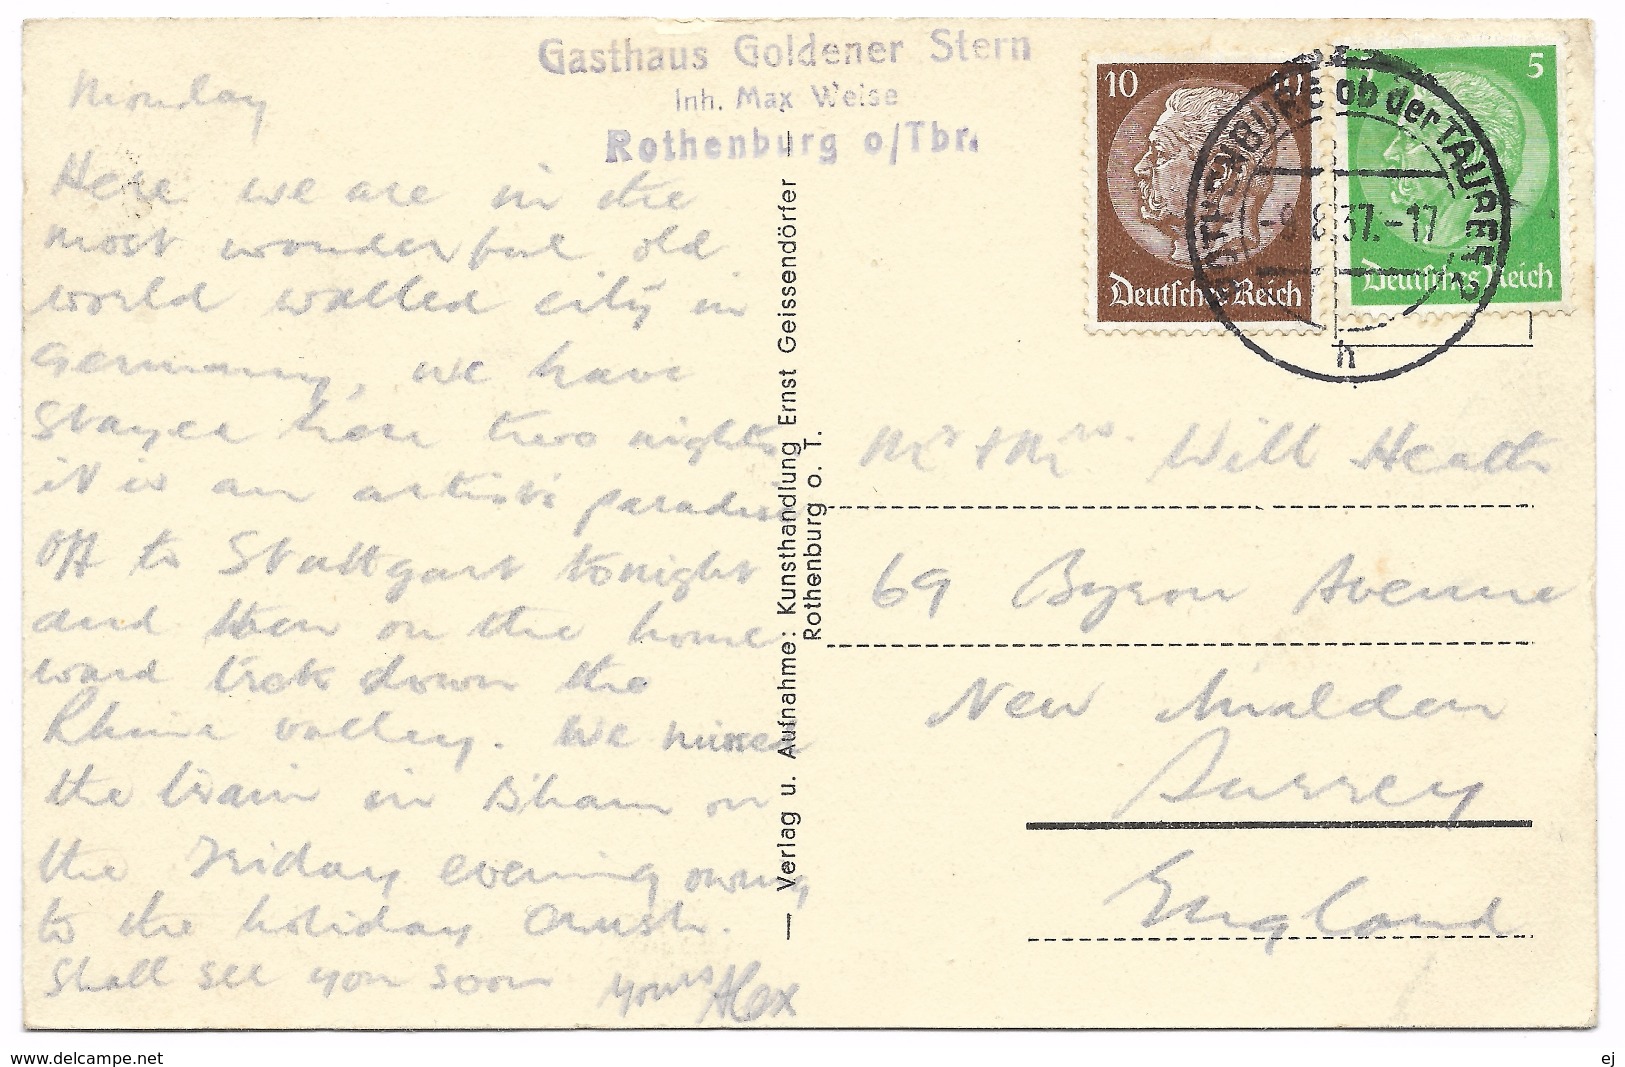 Gasthaus Goldener Stern
Inh. Max Weise
Rothenburg o/Tbr.
Monday
Here we are in the
most wonderful old
world walled city in
Germany, we have
stayed here two nights
it is an artist's paradise
off to Stuttgart tonight
and then on the home
ward trek down the
Rhine valley. We missed
the train in B'ham on
the Friday evening owing
to the holiday crush.
Shall see you soon
Yours Alex
— Verlag u. Aufnahme: Kunsthandlung Ernst Geissendörfer —
Rothenburg o. T.
10
10
Deutsches Reich
5
Deutsches Reich
ROTHENBURG ob der TAUBER 2
-9.8.37.-17
h
Mr & Mrs. Will Heath
69 Byron Avenue
New Malden
Surrey
England
www.delcampe.net
ej